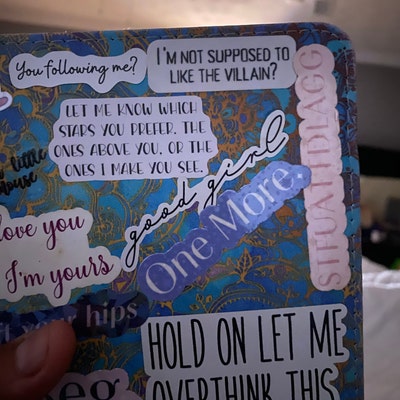 You following me?
I'M NOT SUPPOSED TO
LIKE THE VILLAIN?
LET ME KNOW WHICH
STARS YOU PREFER. THE
ONES ABOVE YOU, OR THE
ONES I MAKE YOU SEE.
little
mouse
good girl
One More.
STFUATTDLAGG
love you
I'm yours
your hips
HOLD ON LET ME
OVERTHINK THIS
Beg